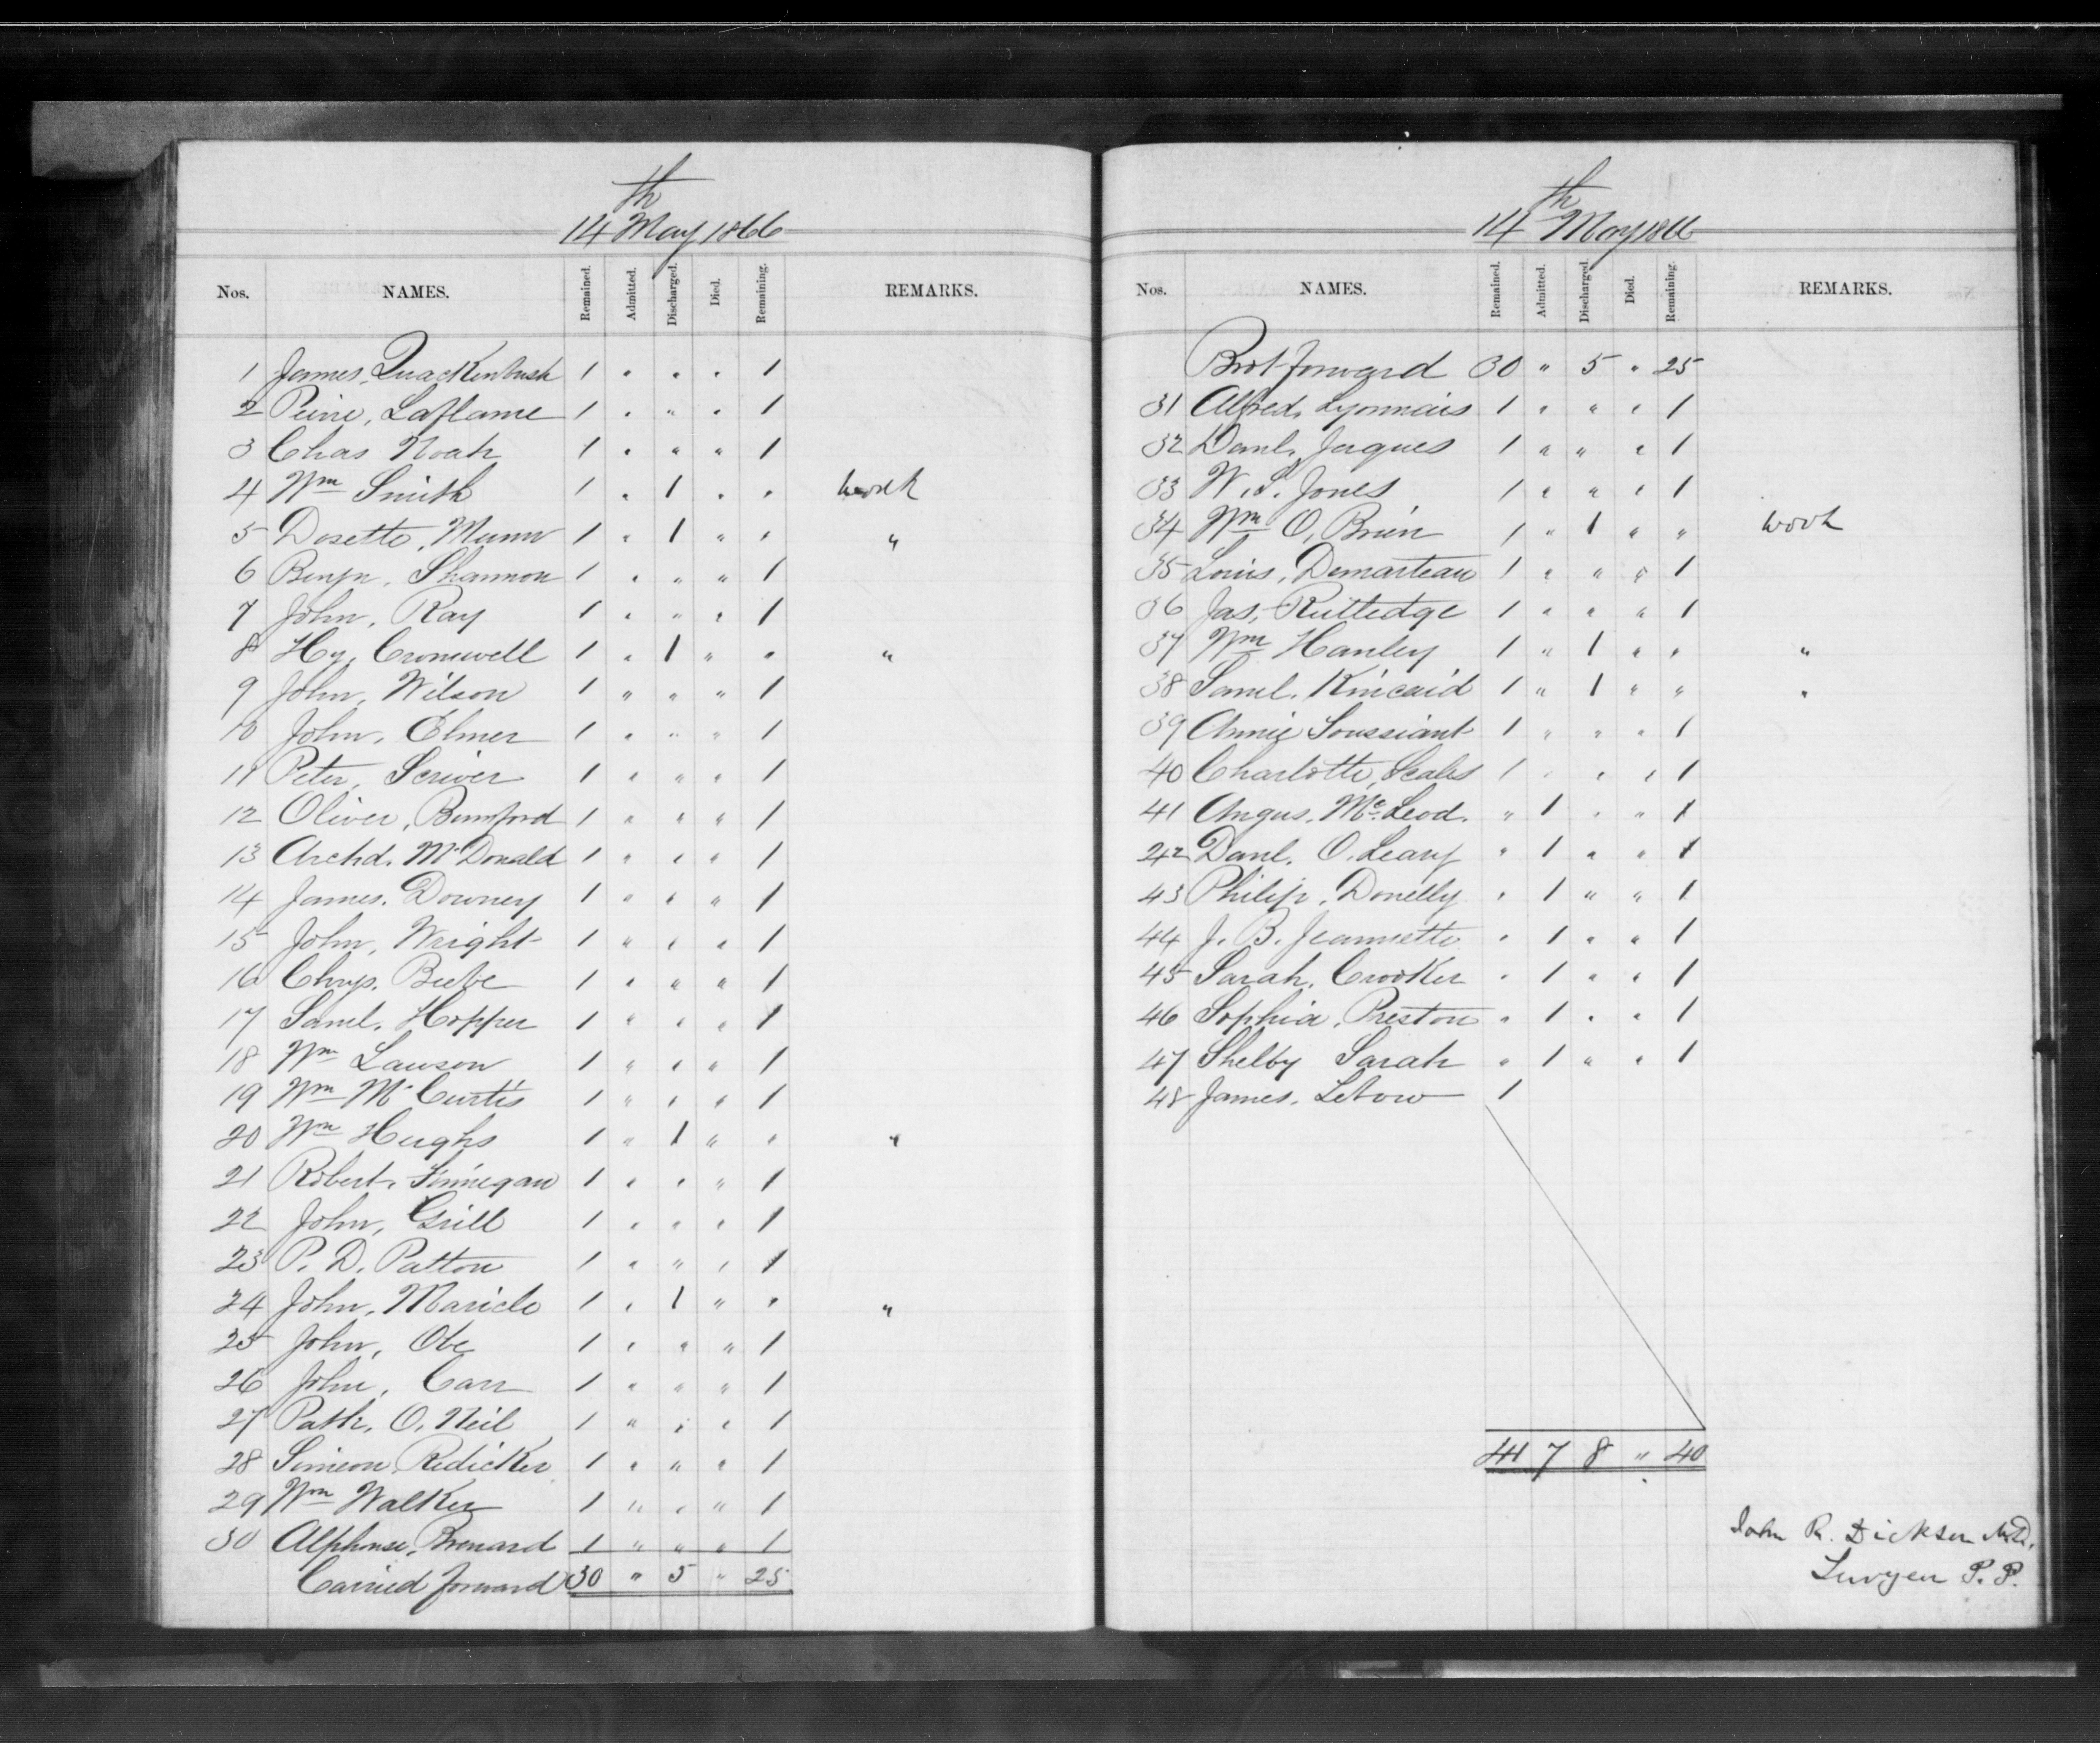 14th May 1866
Nos. NAMES. Remained. Admitted. Discharged. Died. Remaining. REMARKS.
1 James, Quackenbush 1 " " " 1
2 Peirre, Laflame 1 " " " 1
3 Chas Noah 1 " " " 1
4 Wm Smith 1 " 1 " " work
5 Dosette, Munro 1 " 1 " " "
6 Benjn, Shannon 1 " " " 1
7 John, Ray 1 " " " 1
8 Hy, Cromwell 1 " 1 " " "
9 John, Wilson 1 " " " 1
10 John, Elmer 1 " " " 1
11 Peter, Scriver 1 " " " 1
12 Oliver, Bumford 1 " " " 1
13 Archd. McDonald 1 " " " 1
14 James. Downey 1 " " " 1
15 John, Wright 1 " " " 1
16 Chrys. Beebe 1 " " " 1
17 Saml. Hopper 1 " " " 1
18 Wm Lawson 1 " " " 1
19 Wm McCurtis 1 " " " 1
20 Wm Hughs 1 " 1 " " "
21 Robert, Finnegan 1 " " " 1
22 John, Grill 1 " " " 1
23 P. D. Patton 1 " " " 1
24 John, Maricle 1 " 1 " " "
25 John, Obe 1 " " " 1
26 John, Carr 1 " " " 1
27 Patk. O, Neil 1 " " " 1
28 Simeon, Redicker 1 " " " 1
29 Wm Walker 1 " " " 1
30 Alphonse, Brenard 1 " " " 1
Carried forward 30 " 5 " 25
14th May 1866
Nos. NAMES. Remained. Admitted. Discharged. Died. Remaining. REMARKS.
Brot forward 30 " 5 " 25
31 Alfred, Lyonnais 1 " " " 1
32 Danl, Jaques 1 " " " 1
33 W. S. Jones 1 " " " 1
34 Wm O, Brien 1 " 1 " " work
35 Louis, Demarteau 1 " " " 1
36 Jas, Rutledge 1 " " " 1
37 Wm Hanley 1 " 1 " " "
38 Saml. Kincaid 1 " 1 " " "
39 Annie Toussiant 1 " " " 1
40 Charlotte, Scales 1 " " " 1
41 Angus. McLeod. " 1 " " 1
42 Danl. O. Leary " 1 " " 1
43 Philip, Donelly " 1 " " 1
44 J. B. Jeannette " 1 " " 1
45 Sarah, Crooker " 1 " " 1
46 Sophia, Preston " 1 " " 1
47 Shelby Sarah " 1 " " 1
48 James. 1
41 7 8 " 40
John R. Dickson M.D.
Surgeon P. P.